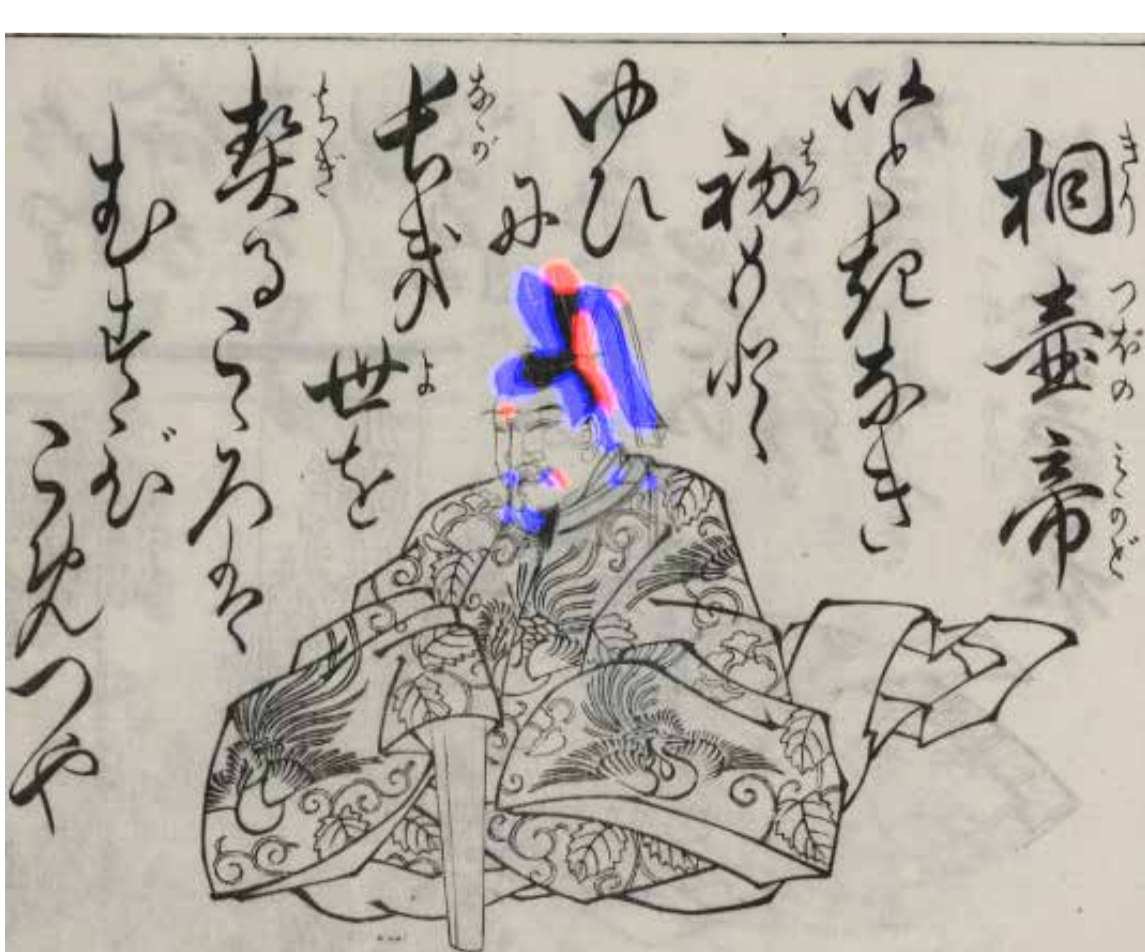 桐壺帝
きりつぼのみかど
いときなき
初もと
はつ
ゆひ
に
長き
なが
世を
よ
契るこゝろは
ちぎ
むすび
こめつや